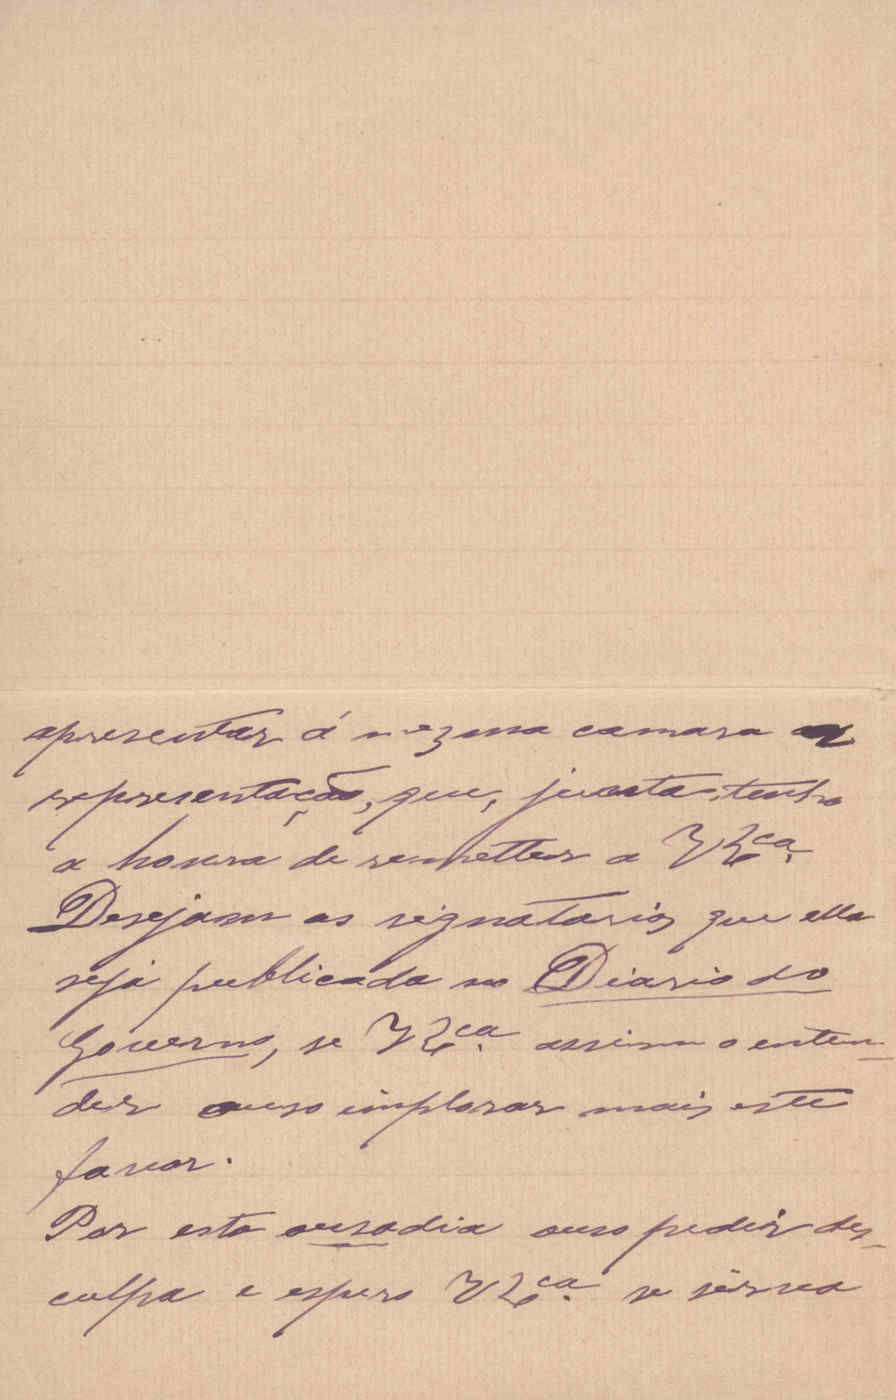 apresentar á mezma camara a
representação, que, junta, tenho
a honra de remetter a V Ex.ca
Desejam os signatarios que ella
seja publicada no Diario do
Governo, se V Ex.ca assim o enten-
der ouso implorar mais este
favor.
Por esta ousadia ouso pedir des-
culpa e espero V Ex.ca se sirva